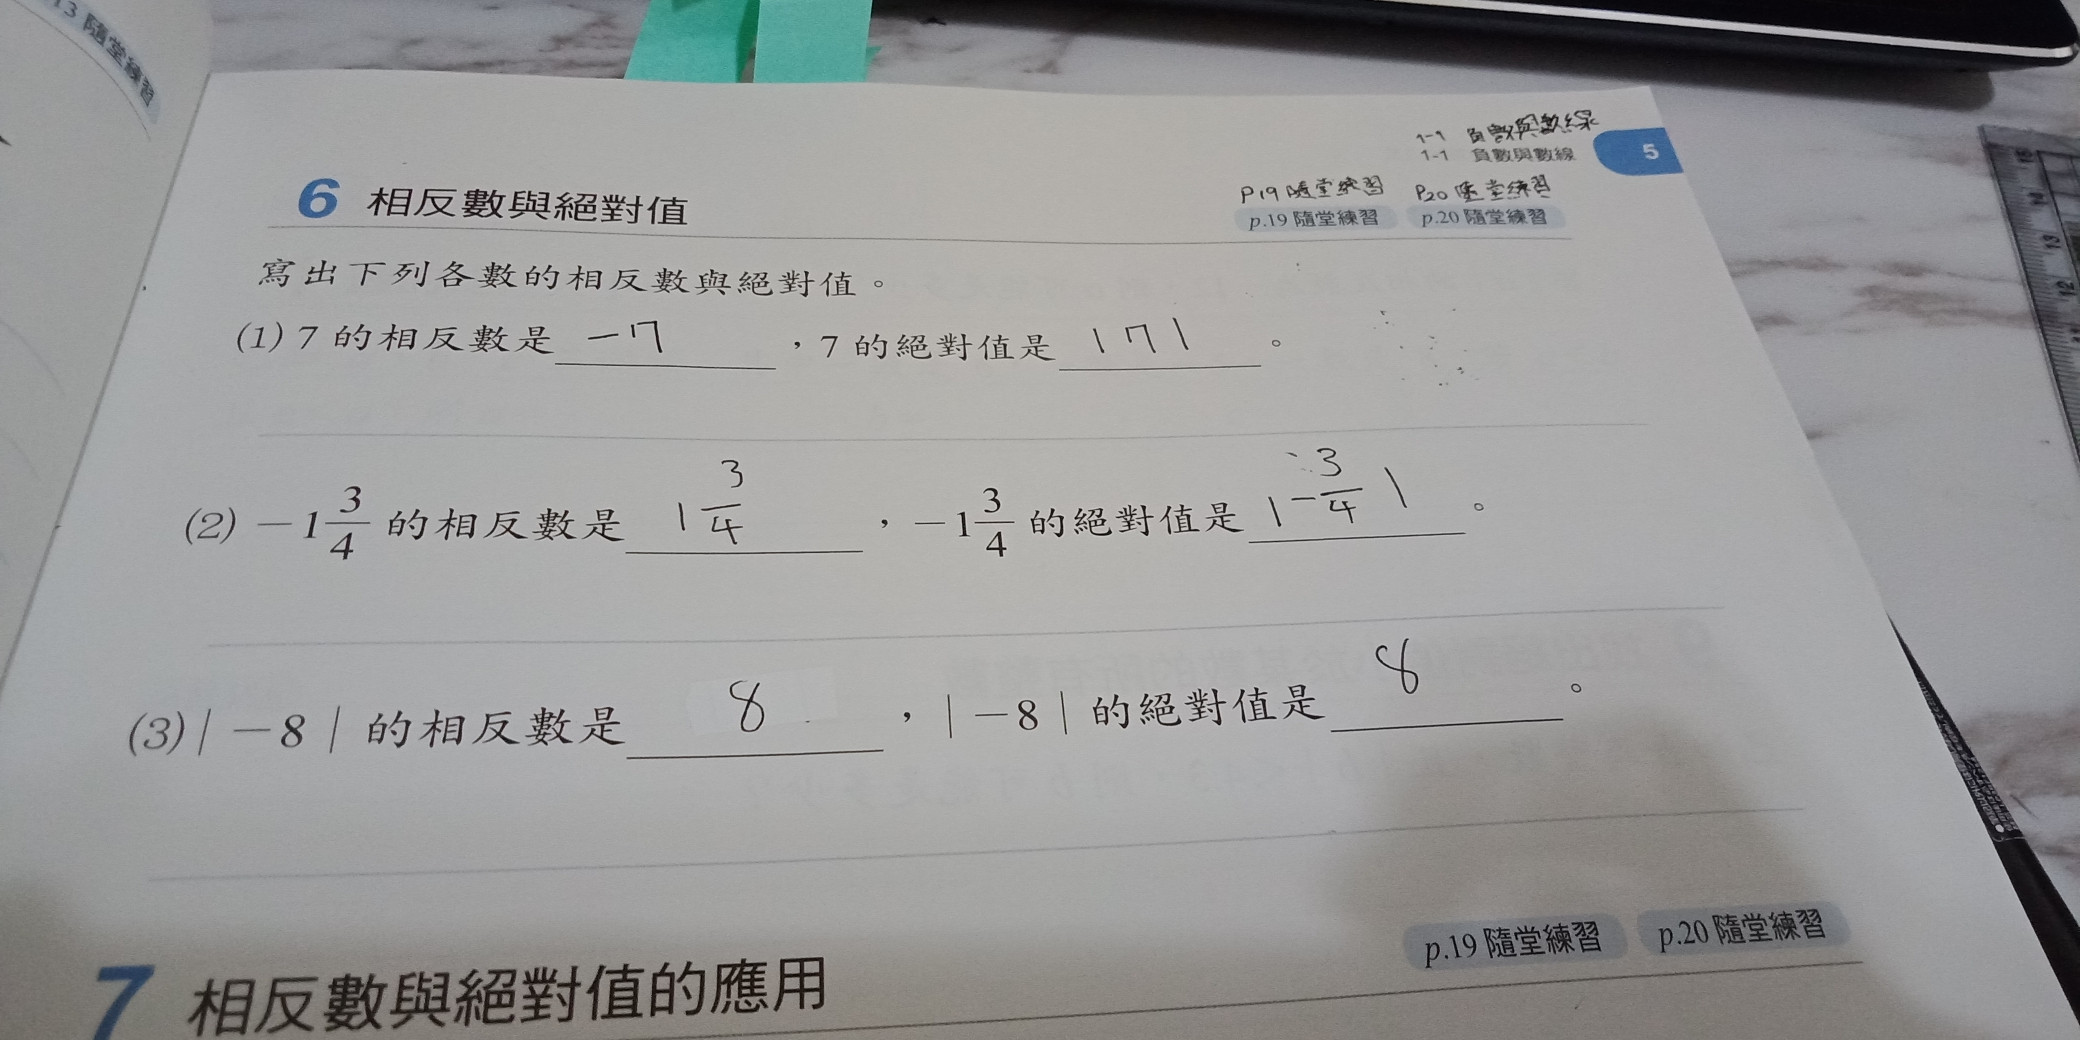 13 隨堂練習
1-1 負數與數線
1-1 負數與數線 5
P19 隨堂練習 P20 隨堂練習
6 相反數與絕對值 p.19 隨堂練習 p.20 隨堂練習
寫出下列各數的相反數與絕對值。
(1) 7 的相反數是 -7 ，7 的絕對值是 |7| 。
(2) -1 3/4 的相反數是 1 3/4 ，-1 3/4 的絕對值是 |-3/4| 。
(3) |-8| 的相反數是 8 ，|-8| 的絕對值是 8 。
7 相反數與絕對值的應用 p.19 隨堂練習 p.20 隨堂練習